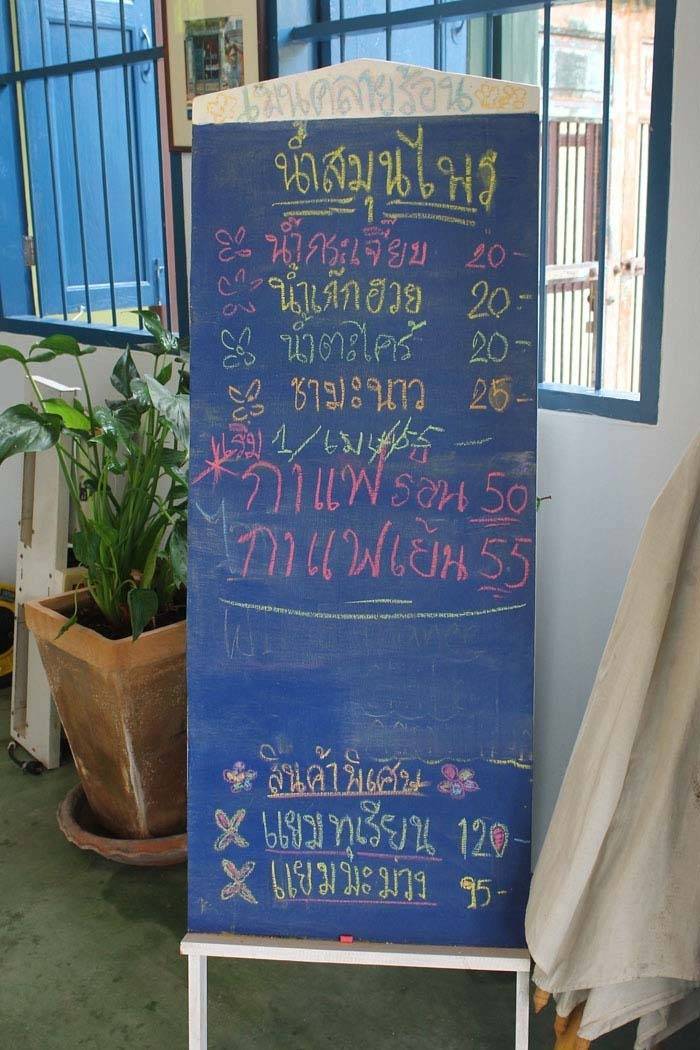 เมนูคลายร้อน
น้ำสมุนไพร
น้ำกระเจี๊ยบ 20-
น้ำเก๊กฮวย 20-
น้ำตะไคร้ 20-
ชามะนาว 25-
เริ่ม 1/เมษ/55
*กาแฟร้อน 50
กาแฟเย็น 55
สินค้าพิเศษ
แยมทุเรียน 120-
แยมมะม่วง 95-